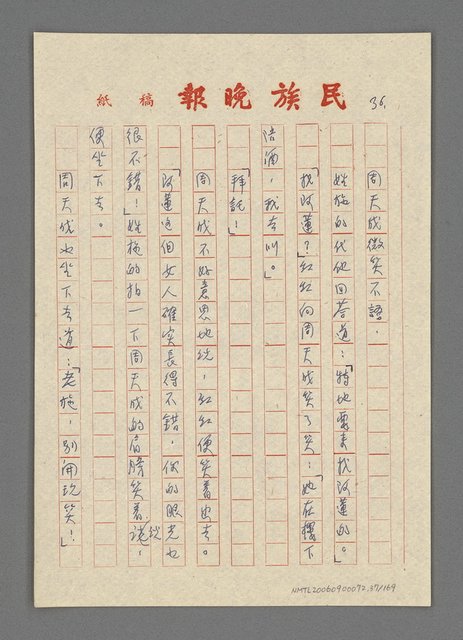 民族晚報 稿紙
36.
周天成微笑不語。
姓施的代他回答道：「特地要來找阿蓮的。」
「找阿蓮？」紅紅向周天成笑了笑：「她在樓下
陪酒，我去叫。」
「拜託！」
周天成不好意思地說，紅紅便笑著出去。
「阿蓮這個女人確實長得不錯，你的眼光也
很不錯！」姓施的拍一下周天成的肩膀笑著說，
便坐下去。
周天成也坐下去道：「老施，別開玩笑！」
NMTL20060900072.37/169